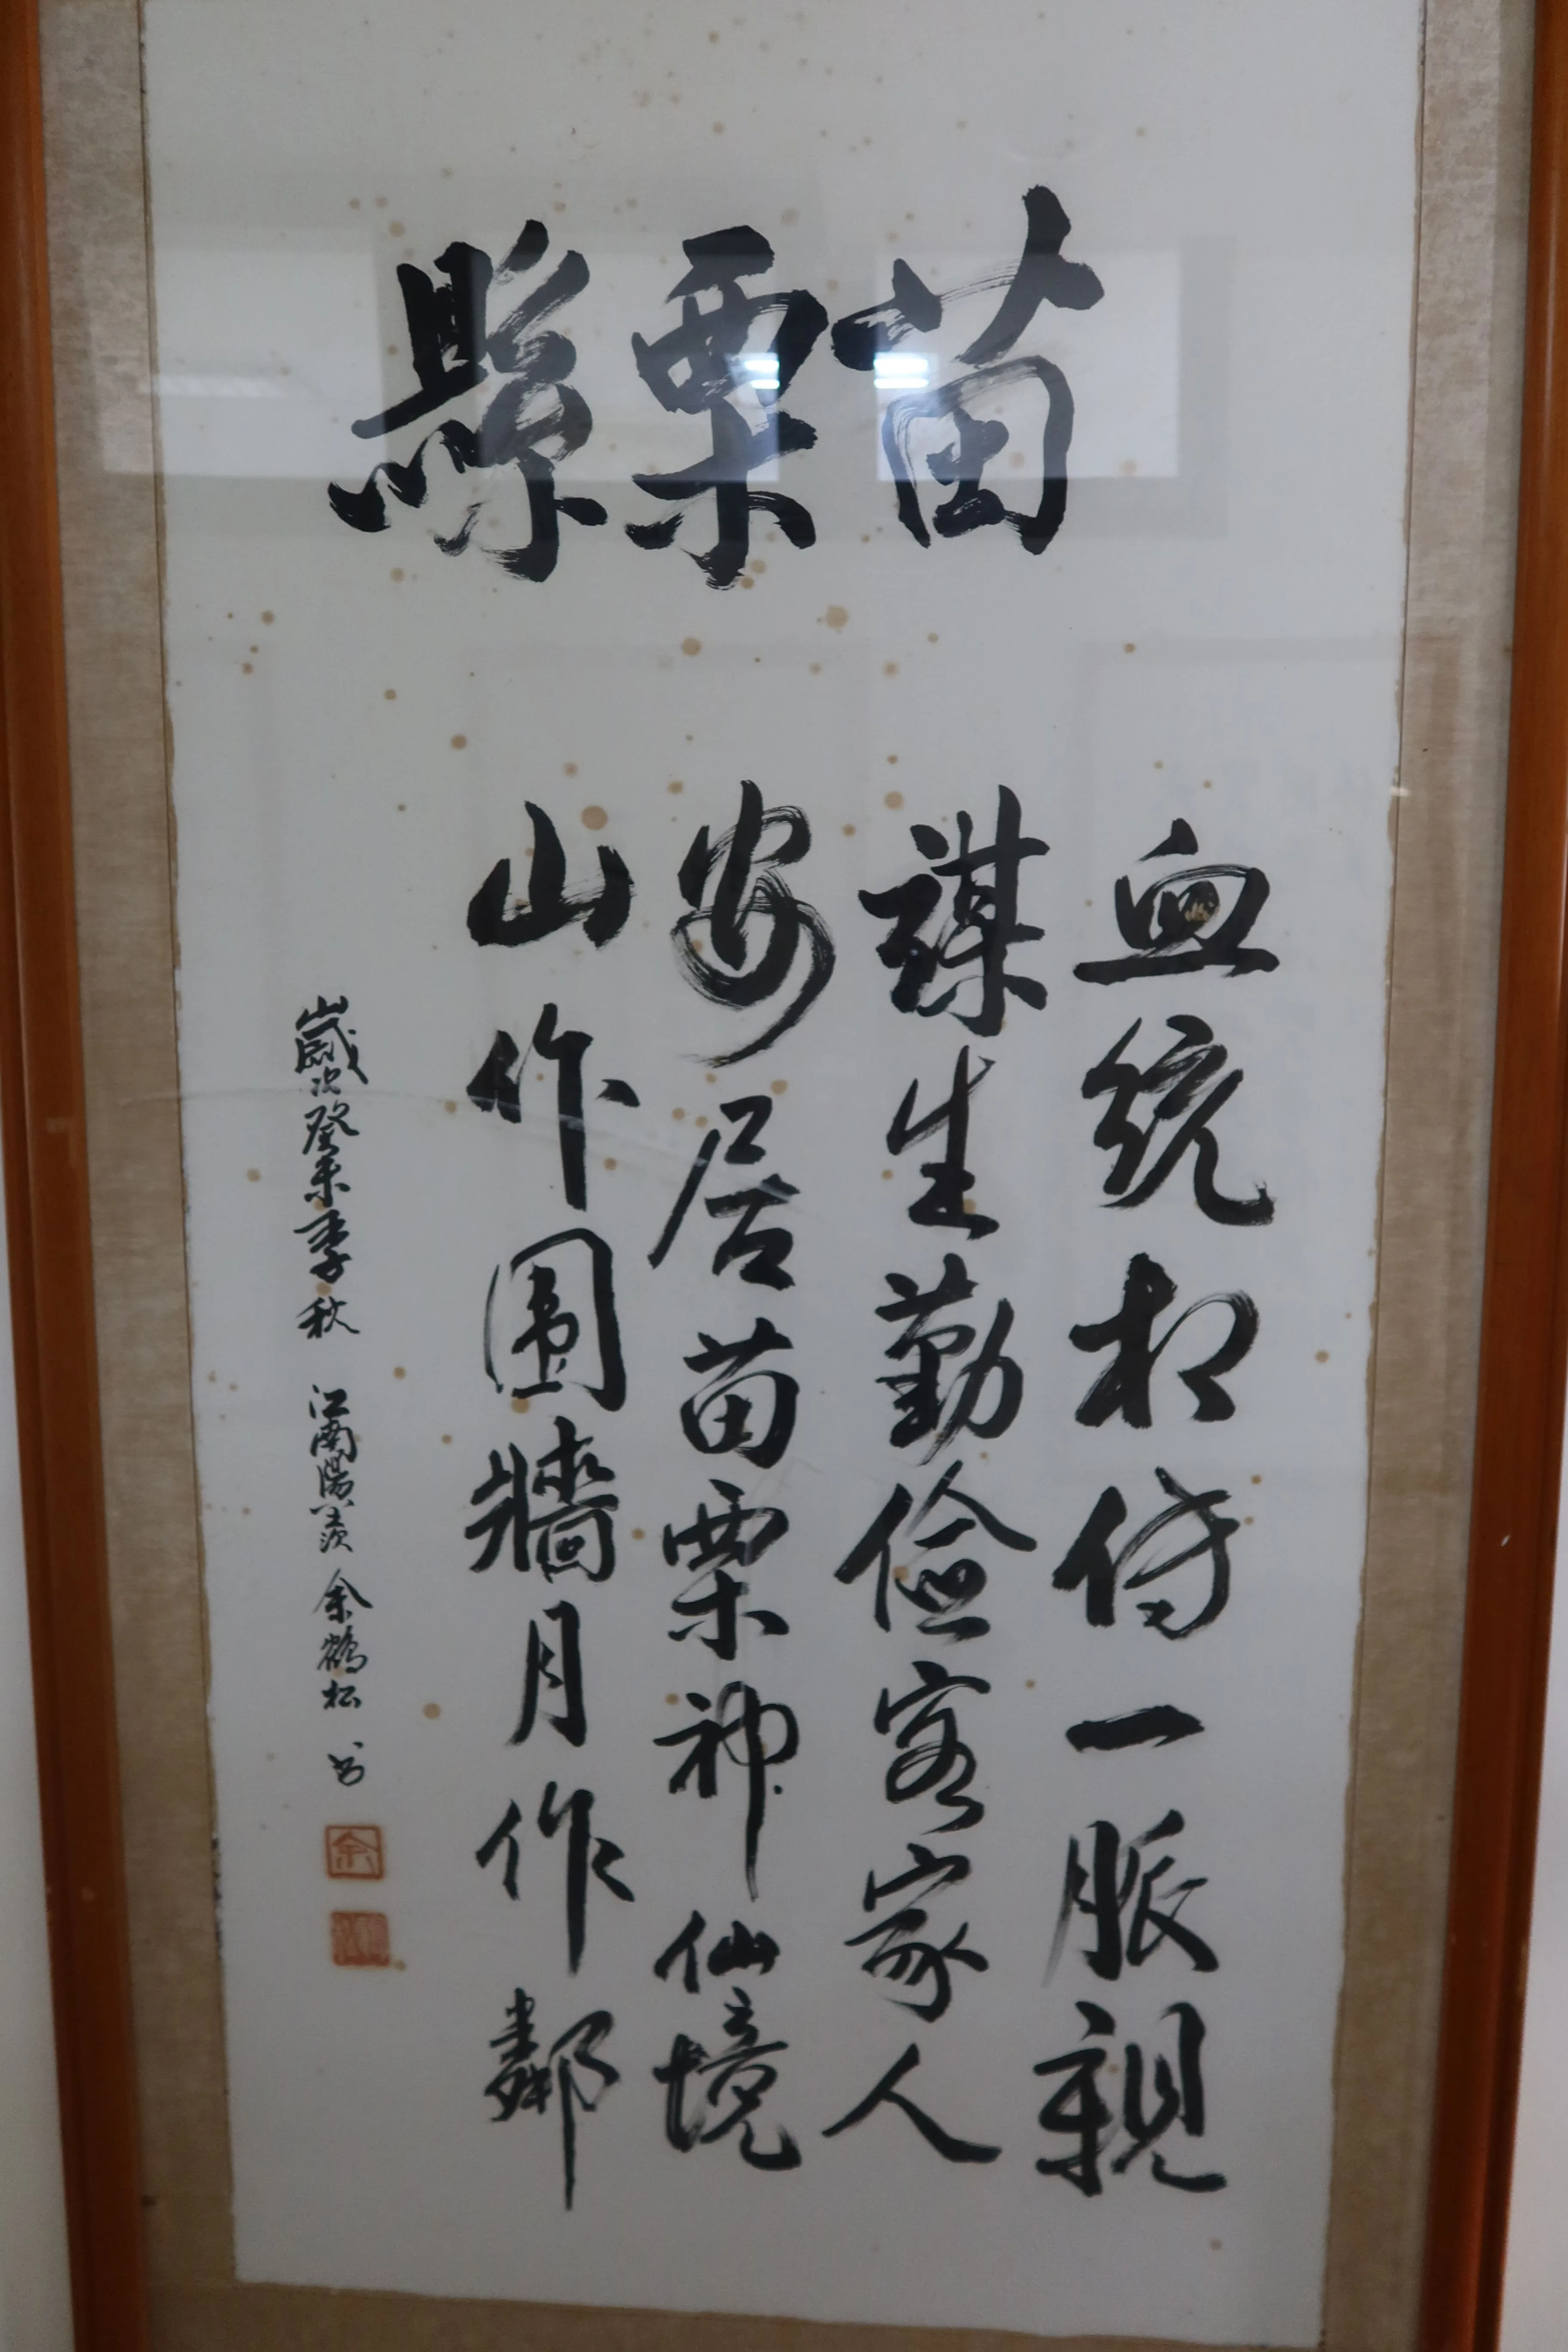 苗栗縣
血統相傳一脈親
謀生勤儉客家人
安居苗栗神仙境
山作圍牆月作鄰
歲次癸未季秋 江南陽羨 余鶴松 书
余